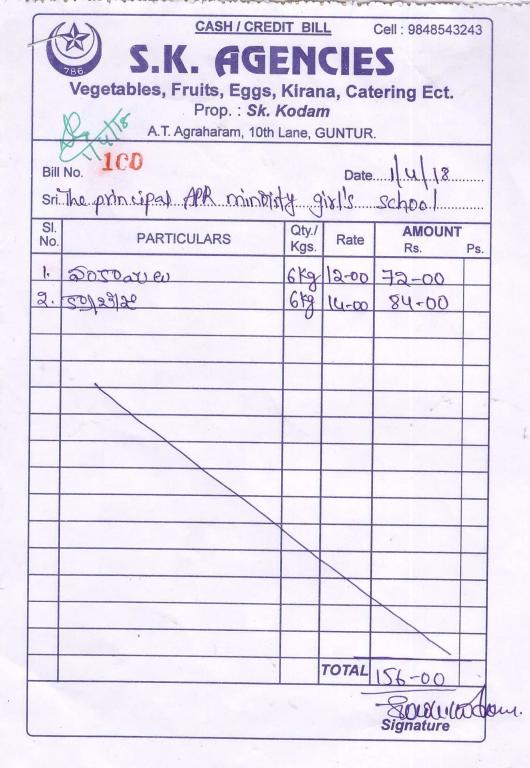 CASH / CREDIT BILL Cell : 9848543243
786
S.K. AGENCIES
Vegetables, Fruits, Eggs, Kirana, Catering Ect.
Prop. : Sk. Kodam
A.T. Agraharam, 10th Lane, GUNTUR.
1/4/18
Bill No. 100 Date 1/4/18
Sri. The principal APR minority girl's school
Sl. No. PARTICULARS Qty./ Kgs. Rate AMOUNT Rs. Ps.
1. వంకాయలు 6kg 12-00 72-00
2. 6kg 14-00 84-00
TOTAL 156-00
Signature